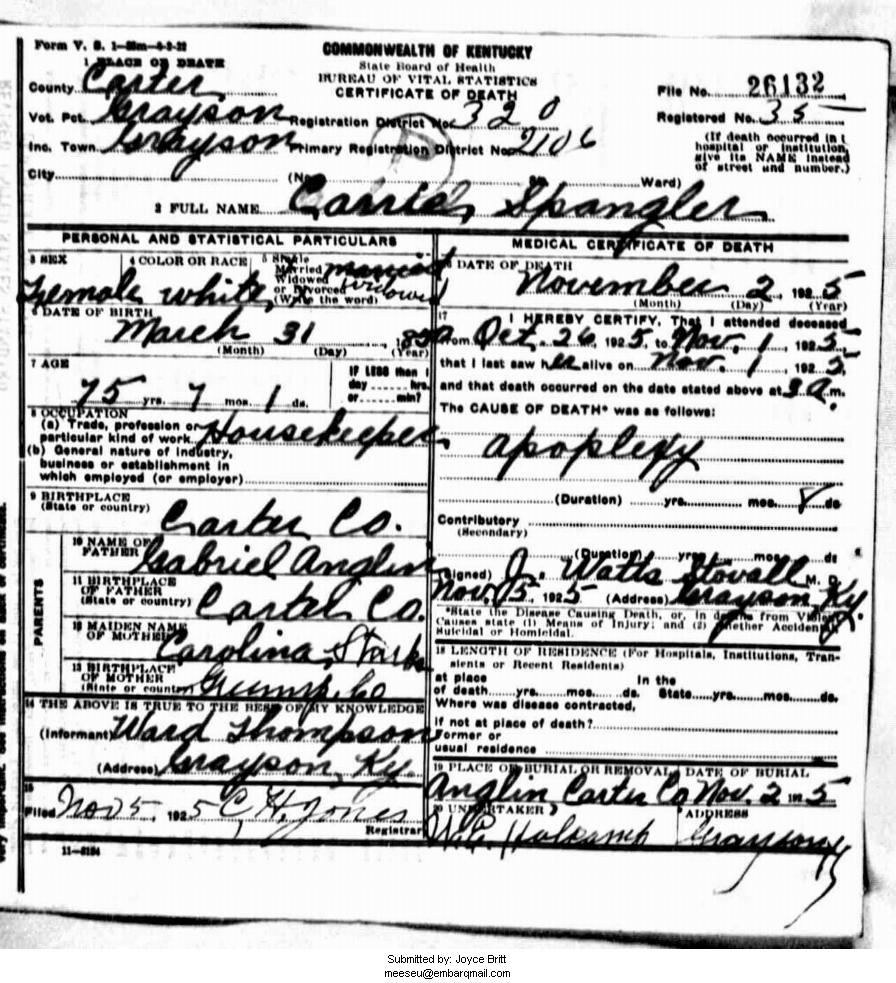 Form V. S. 1-
COMMONWEALTH OF KENTUCKY
State Board of Health
BUREAU OF VITAL STATISTICS
CERTIFICATE OF DEATH
1 PLACE OF DEATH
County Carter
File No. 26132
Vot. Pct. Grayson Registration District No. 320 Registered No. 35
Inc. Town Grayson Primary Registration District No. 2106
(If death occurred in
hospital or institution,
give its NAME instead
of street and number.)
City (No. Ward)
2 FULL NAME Carrie Spangler
PERSONAL AND STATISTICAL PARTICULARS
3 SEX Female
4 COLOR OR RACE white
5 Single Married Widowed or Divorced (Write the word) married widowed
6 DATE OF BIRTH
March 31
(Month) (Day) (Year)
7 AGE
75 yrs. 7 mos. 1 ds.
IF LESS than 1
day hrs.
or min?
8 OCCUPATION
(a) Trade, profession or
particular kind of work Housekeeper
(b) General nature of industry,
business or establishment in
which employed (or employer)
9 BIRTHPLACE
(State or country) Carter Co.
PARENTS
10 NAME OF
FATHER Gabriel Anglin
11 BIRTHPLACE
OF FATHER
(State or country) Carter Co.
12 MAIDEN NAME
OF MOTHER Carolina
13 BIRTHPLACE
OF MOTHER
(State or country) Co
14 THE ABOVE IS TRUE TO THE BEST OF MY KNOWLEDGE
(Informant) Ward Thompson
(Address) Grayson, Ky.
15
Filed Nov 5, 1925 C. H. Jones
Registrar
11-
MEDICAL CERTIFICATE OF DEATH
DATE OF DEATH
November 2 1925
(Month) (Day) (Year)
17 I HEREBY CERTIFY, That I attended deceased
from Oct. 26, 1925, to Nov. 1, 1925
that I last saw her alive on Nov. 1, 1925
and that death occurred on the date stated above at 3 a.m.
The CAUSE OF DEATH* was as follows:
apoplexy
(Duration) yrs. mos. 8 ds
Contributory
(Secondary)
(Duration) yrs. mos. ds
(Signed) J. Watts Stovall M. D.
Nov. 15, 1925 (Address) Grayson, Ky.
*State the Disease Causing Death, or, in deaths from Violent
Causes state (1) Means of Injury; and (2) whether Accidental,
Suicidal or Homicidal.
18 LENGTH OF RESIDENCE (For Hospitals, Institutions, Tran-
sients or Recent Residents)
at place In the
of death yrs. mos. ds. State yrs. mos. ds.
Where was disease contracted,
if not at place of death?
Former or
usual residence
19 PLACE OF BURIAL OR REMOVAL DATE OF BURIAL
Anglin Carter Co Nov. 2 1925
20 UNDERTAKER ADDRESS
Grayson Ky
Submitted by: Joyce Britt
meeseu@embarqmail.com